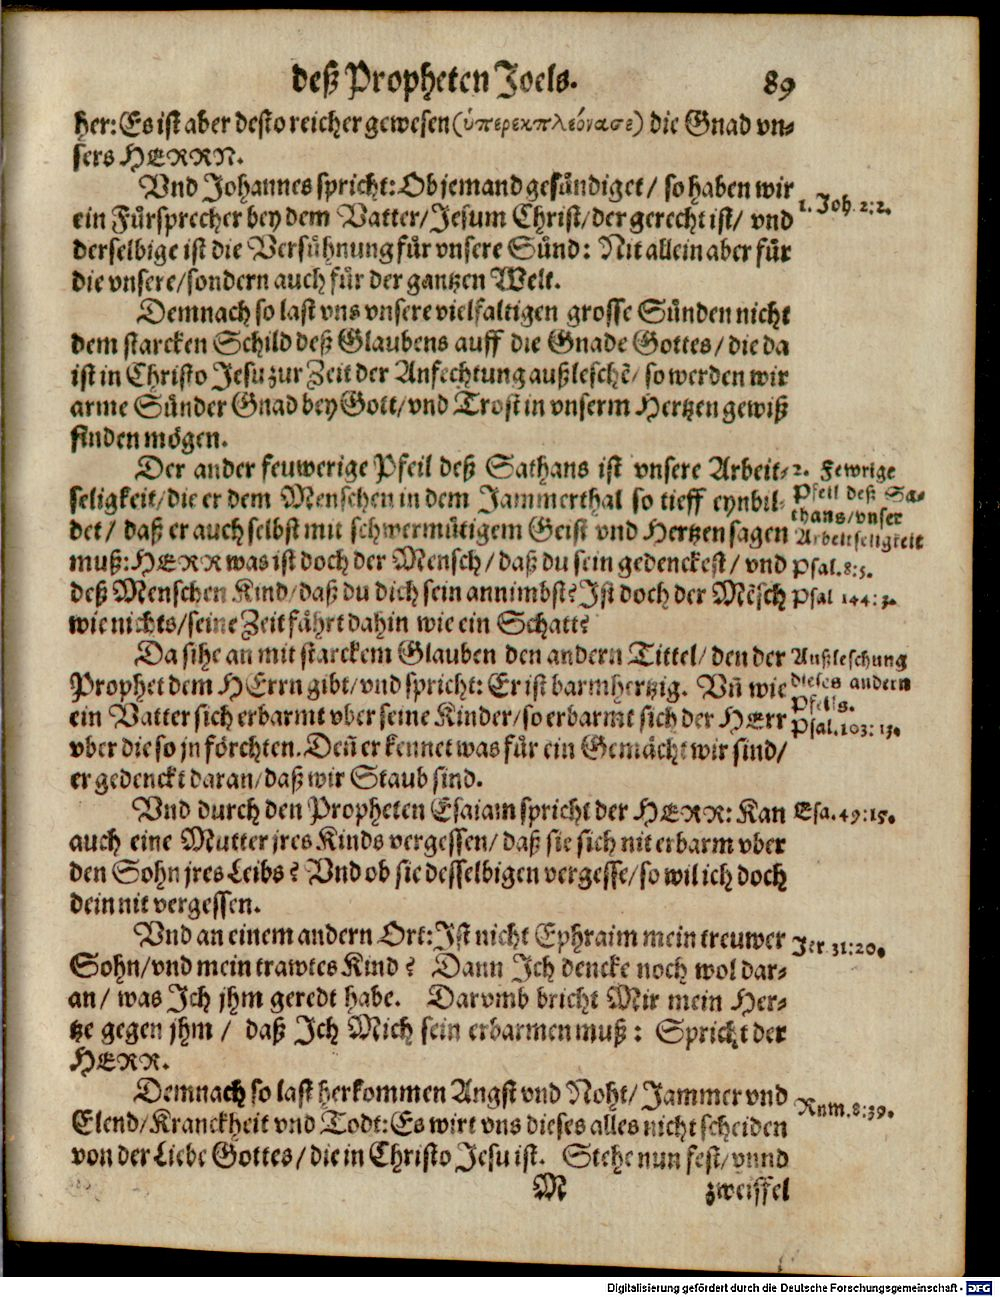 deß Propheten Joels. 89
her: Es ist aber desto reicher gewesen (ὑπερεκπλεόνασε) die Gnad vn-
sers HERRN.
Vnd Johannes spricht: Ob jemand gesündiget / so haben wir
ein Fürsprecher bey dem Vatter / Jesum Christ / der gerecht ist / vnd
1. Joh. 2:2.
derselbige ist die Versühnung für vnsere Sünd: Nit allein aber für
die vnsere / sondern auch für der gantzen Welt.
Demnach so last vns vnsere vielfaltigen grosse Sünden nicht
dem starcken Schild deß Glaubens auff die Gnade Gottes / die da
ist in Christo Jesu zur Zeit der Anfechtung außleschē / so werden wir
arme Sünder Gnad bey Gott / vnd Trost in vnserm Hertzen gewiß
finden mögen.
Der ander feuwerige Pfeil deß Sathans ist vnsere Arbeit-
seligkeit / die er dem Menschen in dem Jammerthal so tieff eynbil-
det / daß er auch selbst mit schwermütigem Geist vnd Hertzen sagen
muß: HERR was ist doch der Mensch / daß du sein gedenckest / vnd
deß Menschen Kind / daß du dich sein annimbst? Ist doch der Mēsch
wie nichts / seine Zeit fährt dahin wie ein Schatt?
2. Fewrige
Pfeil deß Sa-
thans / vnser
Arbeitseligkeit
Psal. 8:5.
Psal 144:3.
Da sihe an mit starckem Glauben den andern Tittel / den der
Prophet dem HErrn gibt / vnd spricht: Er ist barmhertzig. Vñ wie
ein Vatter sich erbarmt vber seine Kinder / so erbarmt sich der HErr
vber die so jn förchten. Deñ er kennet was für ein Gemächt wir sind /
er gedenckt daran / daß wir Staub sind.
Außleschung
dieses andern
Pfeils.
Psal. 103:13.
Vnd durch den Propheten Esaiam spricht der HERR: Kan
Esa. 49:15.
auch eine Mutter jres Kinds vergessen / daß sie sich nit erbarm vber
den Sohn jres Leibs? Vnd ob sie desselbigen vergesse / so wil ich doch
dein nit vergessen.
Vnd an einem andern Ort: Ist nicht Ephraim mein treuwer
Jer. 31:20.
Sohn / vnd mein trawtes Kind? Dann Ich dencke noch wol dar-
an / was Ich jhm geredt habe. Darvmb bricht Mir mein Her-
tze gegen jhm / daß Ich Mich sein erbarmen muß: Spricht der
HERR.
Demnach so last herkommen Angst vnd Noht / Jammer vnd
Rom. 8:39.
Elend / Kranckheit vnd Todt: Es wirt vns dieses alles nicht scheiden
von der Liebe Gottes / die in Christo Jesu ist. Stehe nun fest / vnnd
M zweiffel
Digitalisierung gefördert durch die Deutsche Forschungsgemeinschaft - DFG